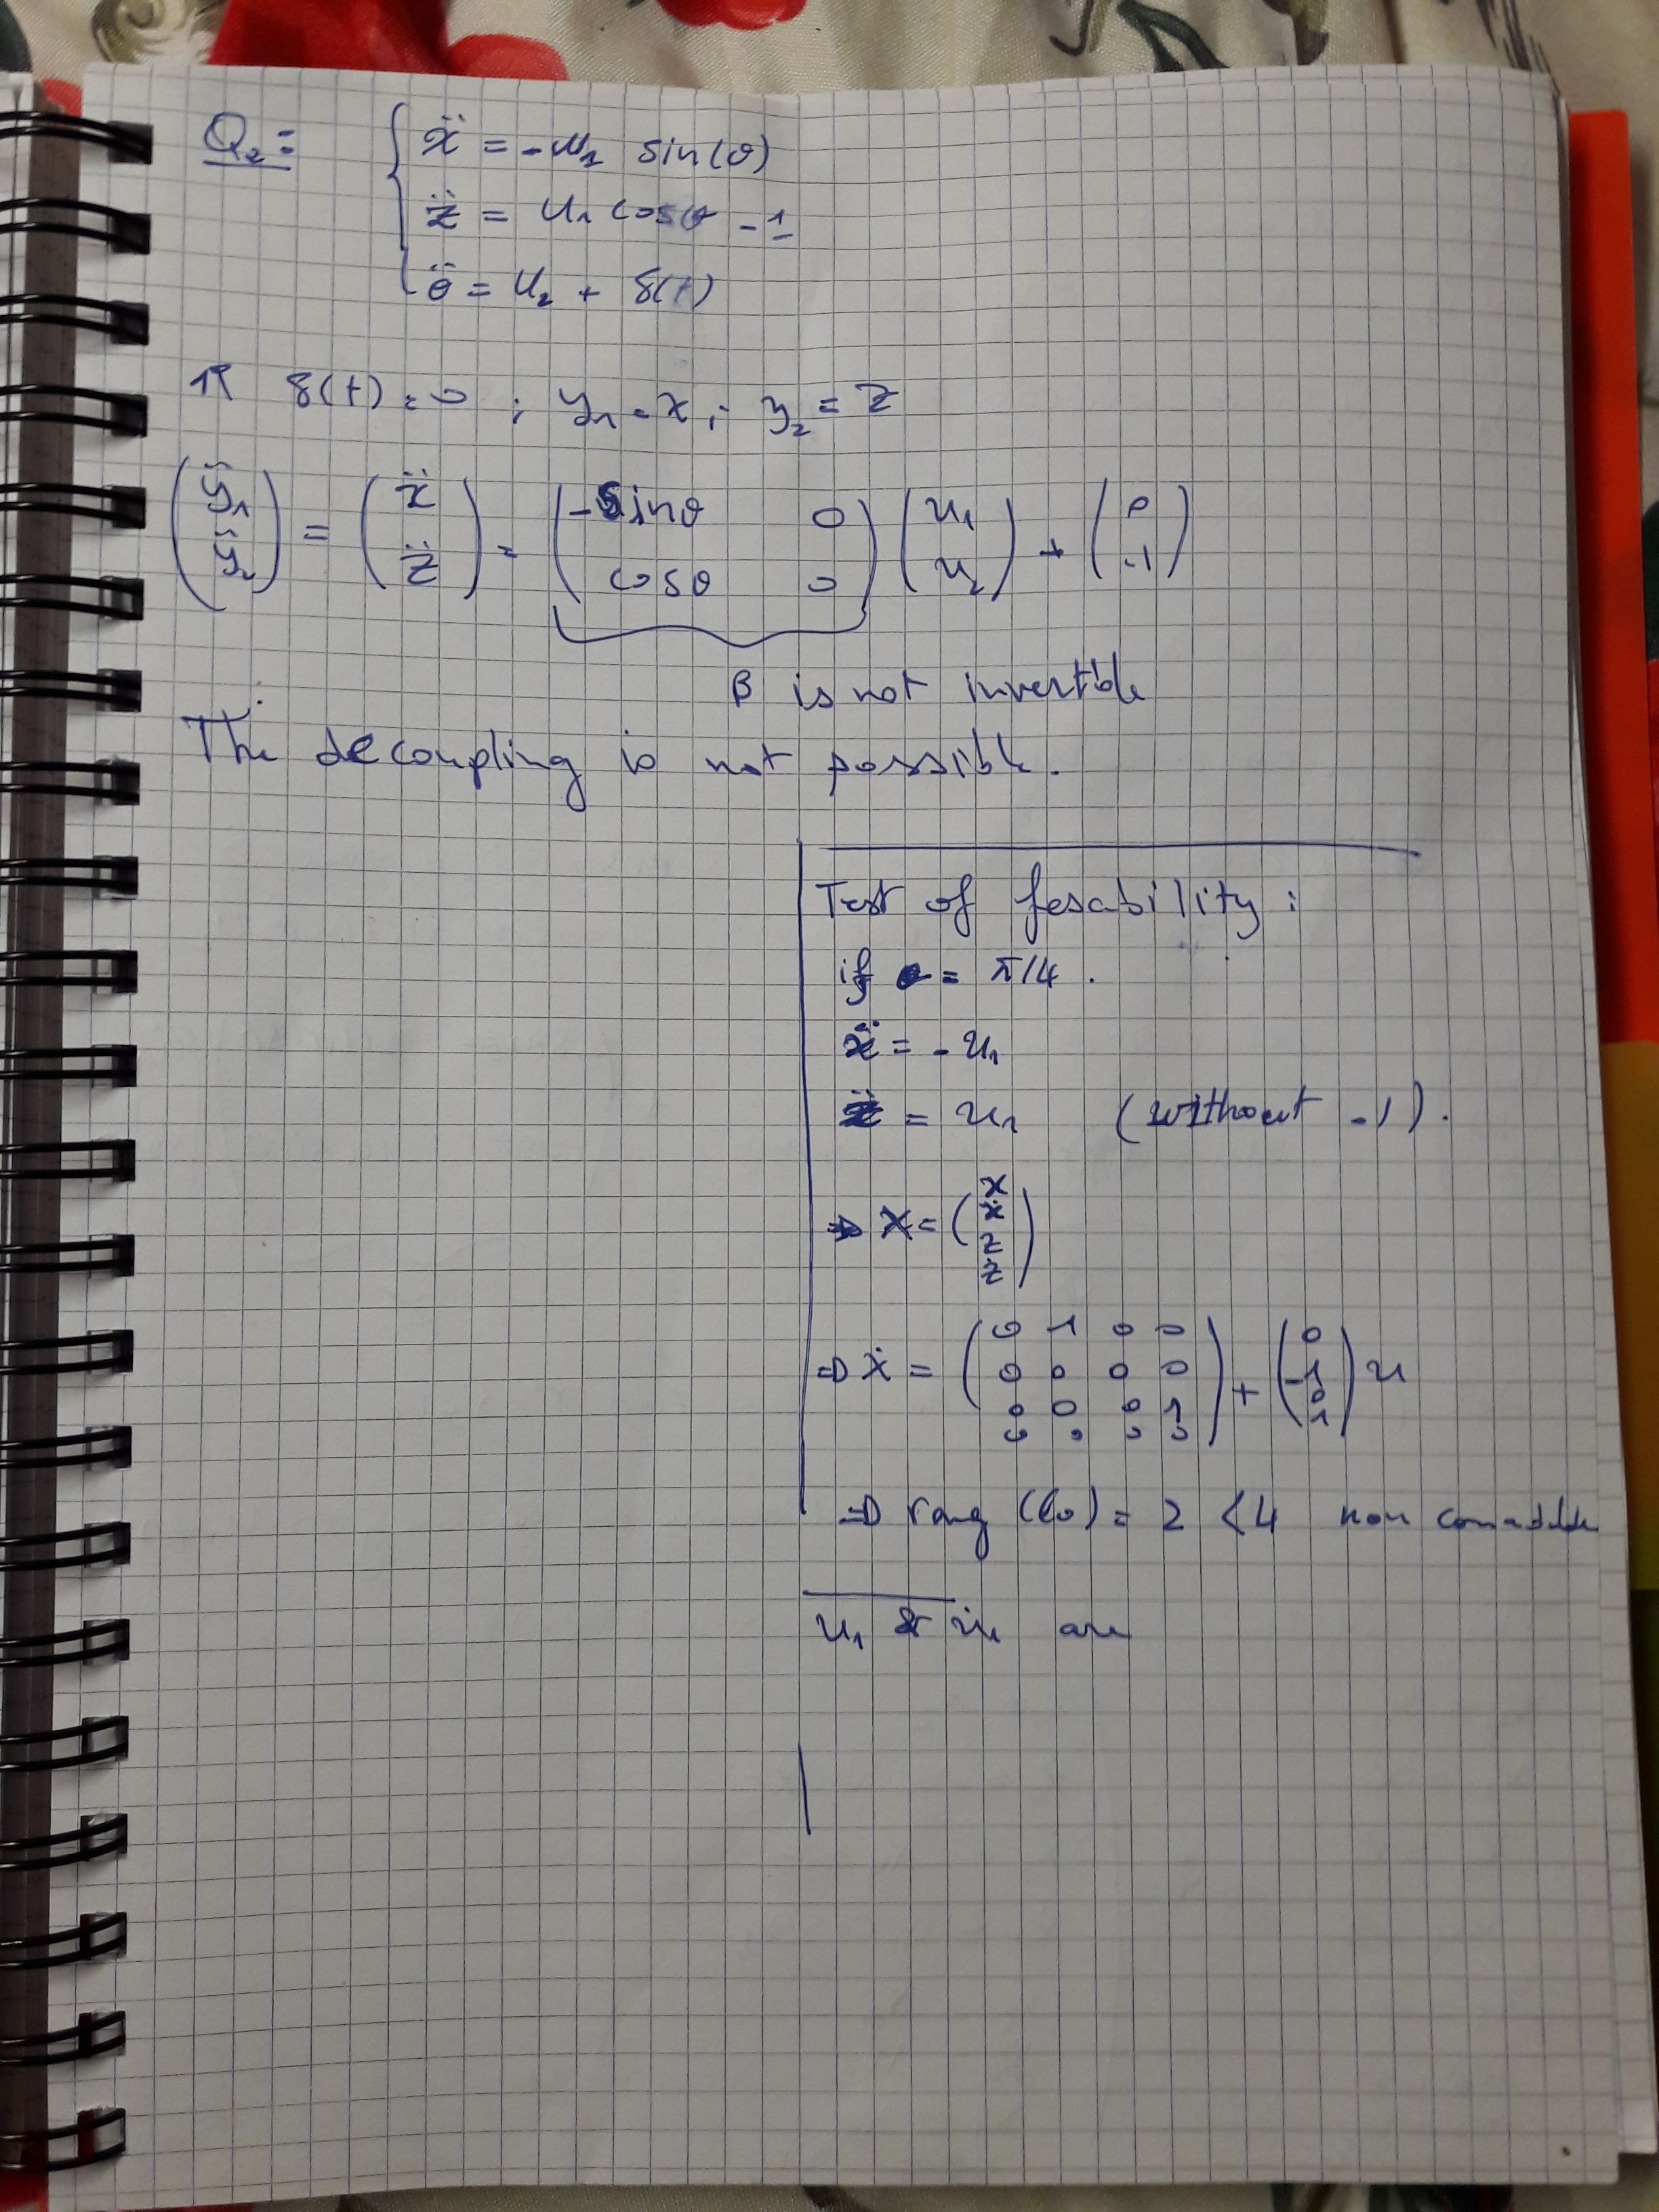 Q₂: { ẍ = -u₁ sin(θ)
z̈ = u₁ cosθ - 1
θ̈ = u₂ + δ(t)
δ(t) = 0 ; y₁ = x ; y₂ = z
(ÿ₁ ÿ₂) = (ẍ z̈) = (-sinθ 0 cosθ 0) (u₁ u₂) + (0 -1)
β is not invertible
The decoupling is not possible.
Test of fesability :
if = π/4 .
ẍ = - u₁
z̈ = u₁ (without -1).
⇒ X = (x ẋ z ż)
⇒ Ẋ = (0 1 0 0 0 0 0 0 0 0 0 1 0 0 0 0) + (0 -1 0 1) u
⇒ rang (Co) = 2 < 4 non
u₁ & are